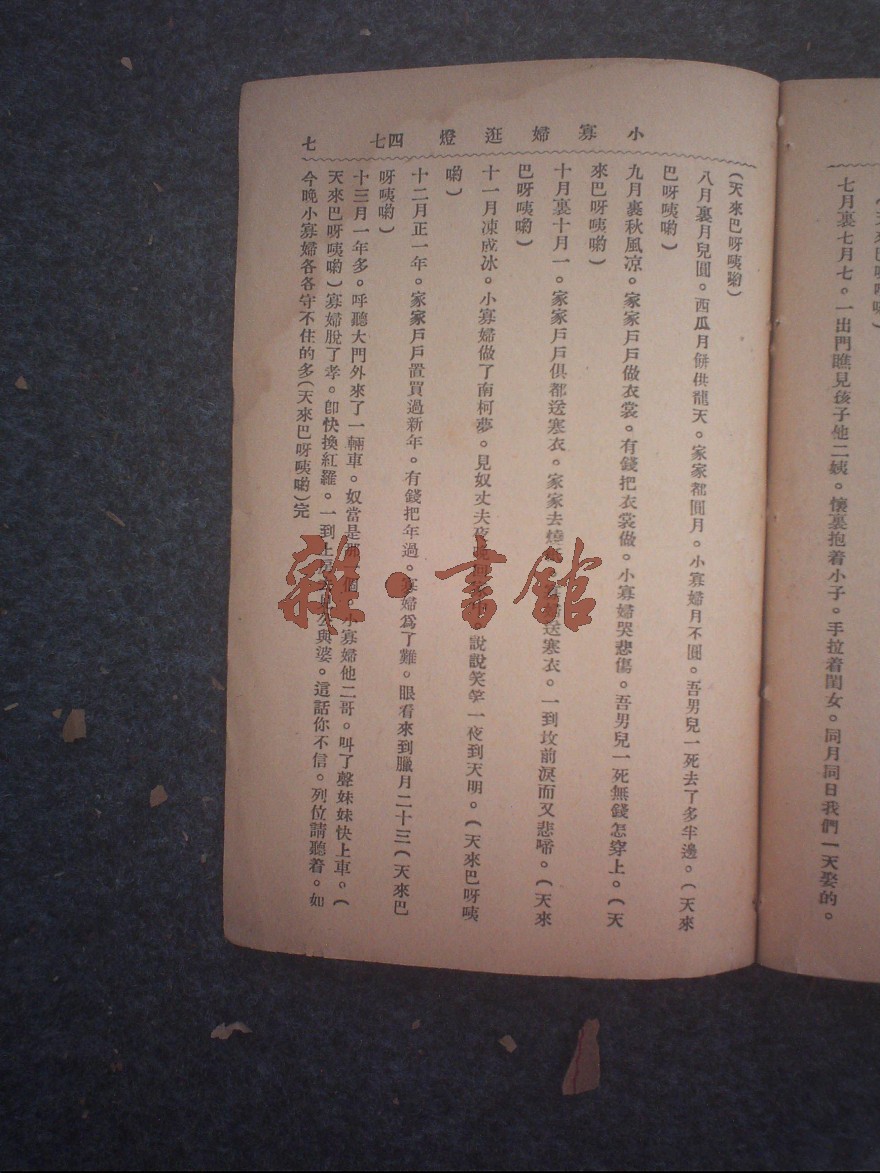 七月裏七月七。一出門瞧見孩子他二姨。懷裏抱着小子。手拉着閨女。同月同日我們一天娶的。
小寡婦逛燈 四七 七
(天來巴呀咦喲)
八月裏月兒圓。西瓜月餅供龍天。家家都圓月。小寡婦月不圓。吾男兒一死去了多半邊。(天來
巴呀咦喲)
九月裏秋風凉。家家戶戶做衣裳。有錢把衣裳做。小寡婦哭悲傷。吾男兒一死無錢怎穿上。(天
來巴呀咦喲)
十月裏十月一。家家戶戶俱都送寒衣。家家去燒送寒衣。一到坟前淚而又悲啼。(天來
巴呀咦喲)
十一月凍成冰。小寡婦做了南柯夢。見奴丈夫夜說說笑笑一夜到天明。(天來巴呀咦
喲)
十二月正一年。家家戶戶置買過新年。有錢把年過。寡婦爲了難。眼看來到臘月二十三(天來巴
呀咦喲)
十三月一年多。呼聽大門外來了一輛車。奴當是那個。小寡婦他二哥。叫了聲妹妹快上車。(
天來巴呀咦喲)寡婦脫了孝。卽快換紅羅。一到上公與婆。這話你不信。列位請聽着。如
今晚小寡婦各各守不住的多(天來巴呀咦喲)完
雜·書館